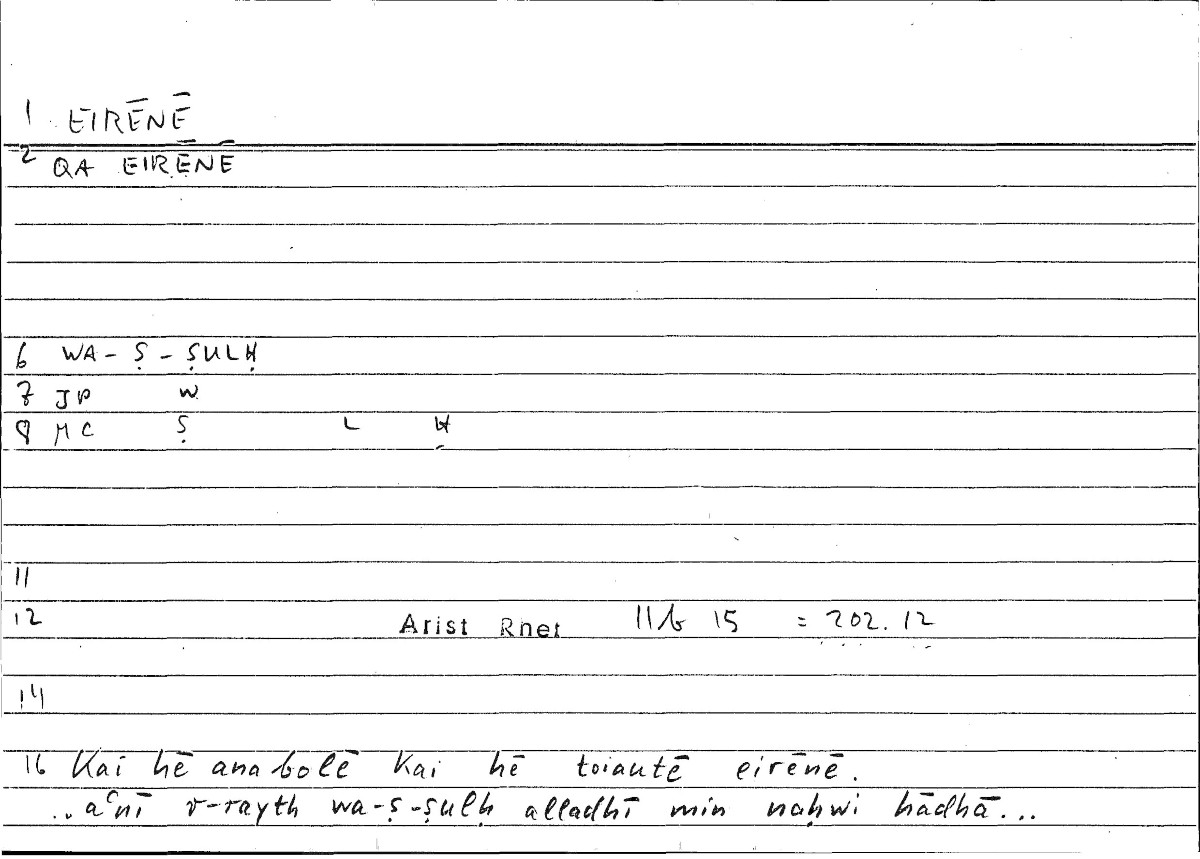 1 EIRĒNĒ
2 QA EIRĒNĒ
6 WA-Ṣ-ṢULḤ
7 JP W
8 MC Ṣ L Ḥ
11
12 Arist Rhet 11b 15 = 202.12
14
16 Kai hē anabolē Kai hē toiautē eirēnē.
..aʿnī r-rayth wa-ṣ-ṣulḥ alladhī min naḥwi hādhā...